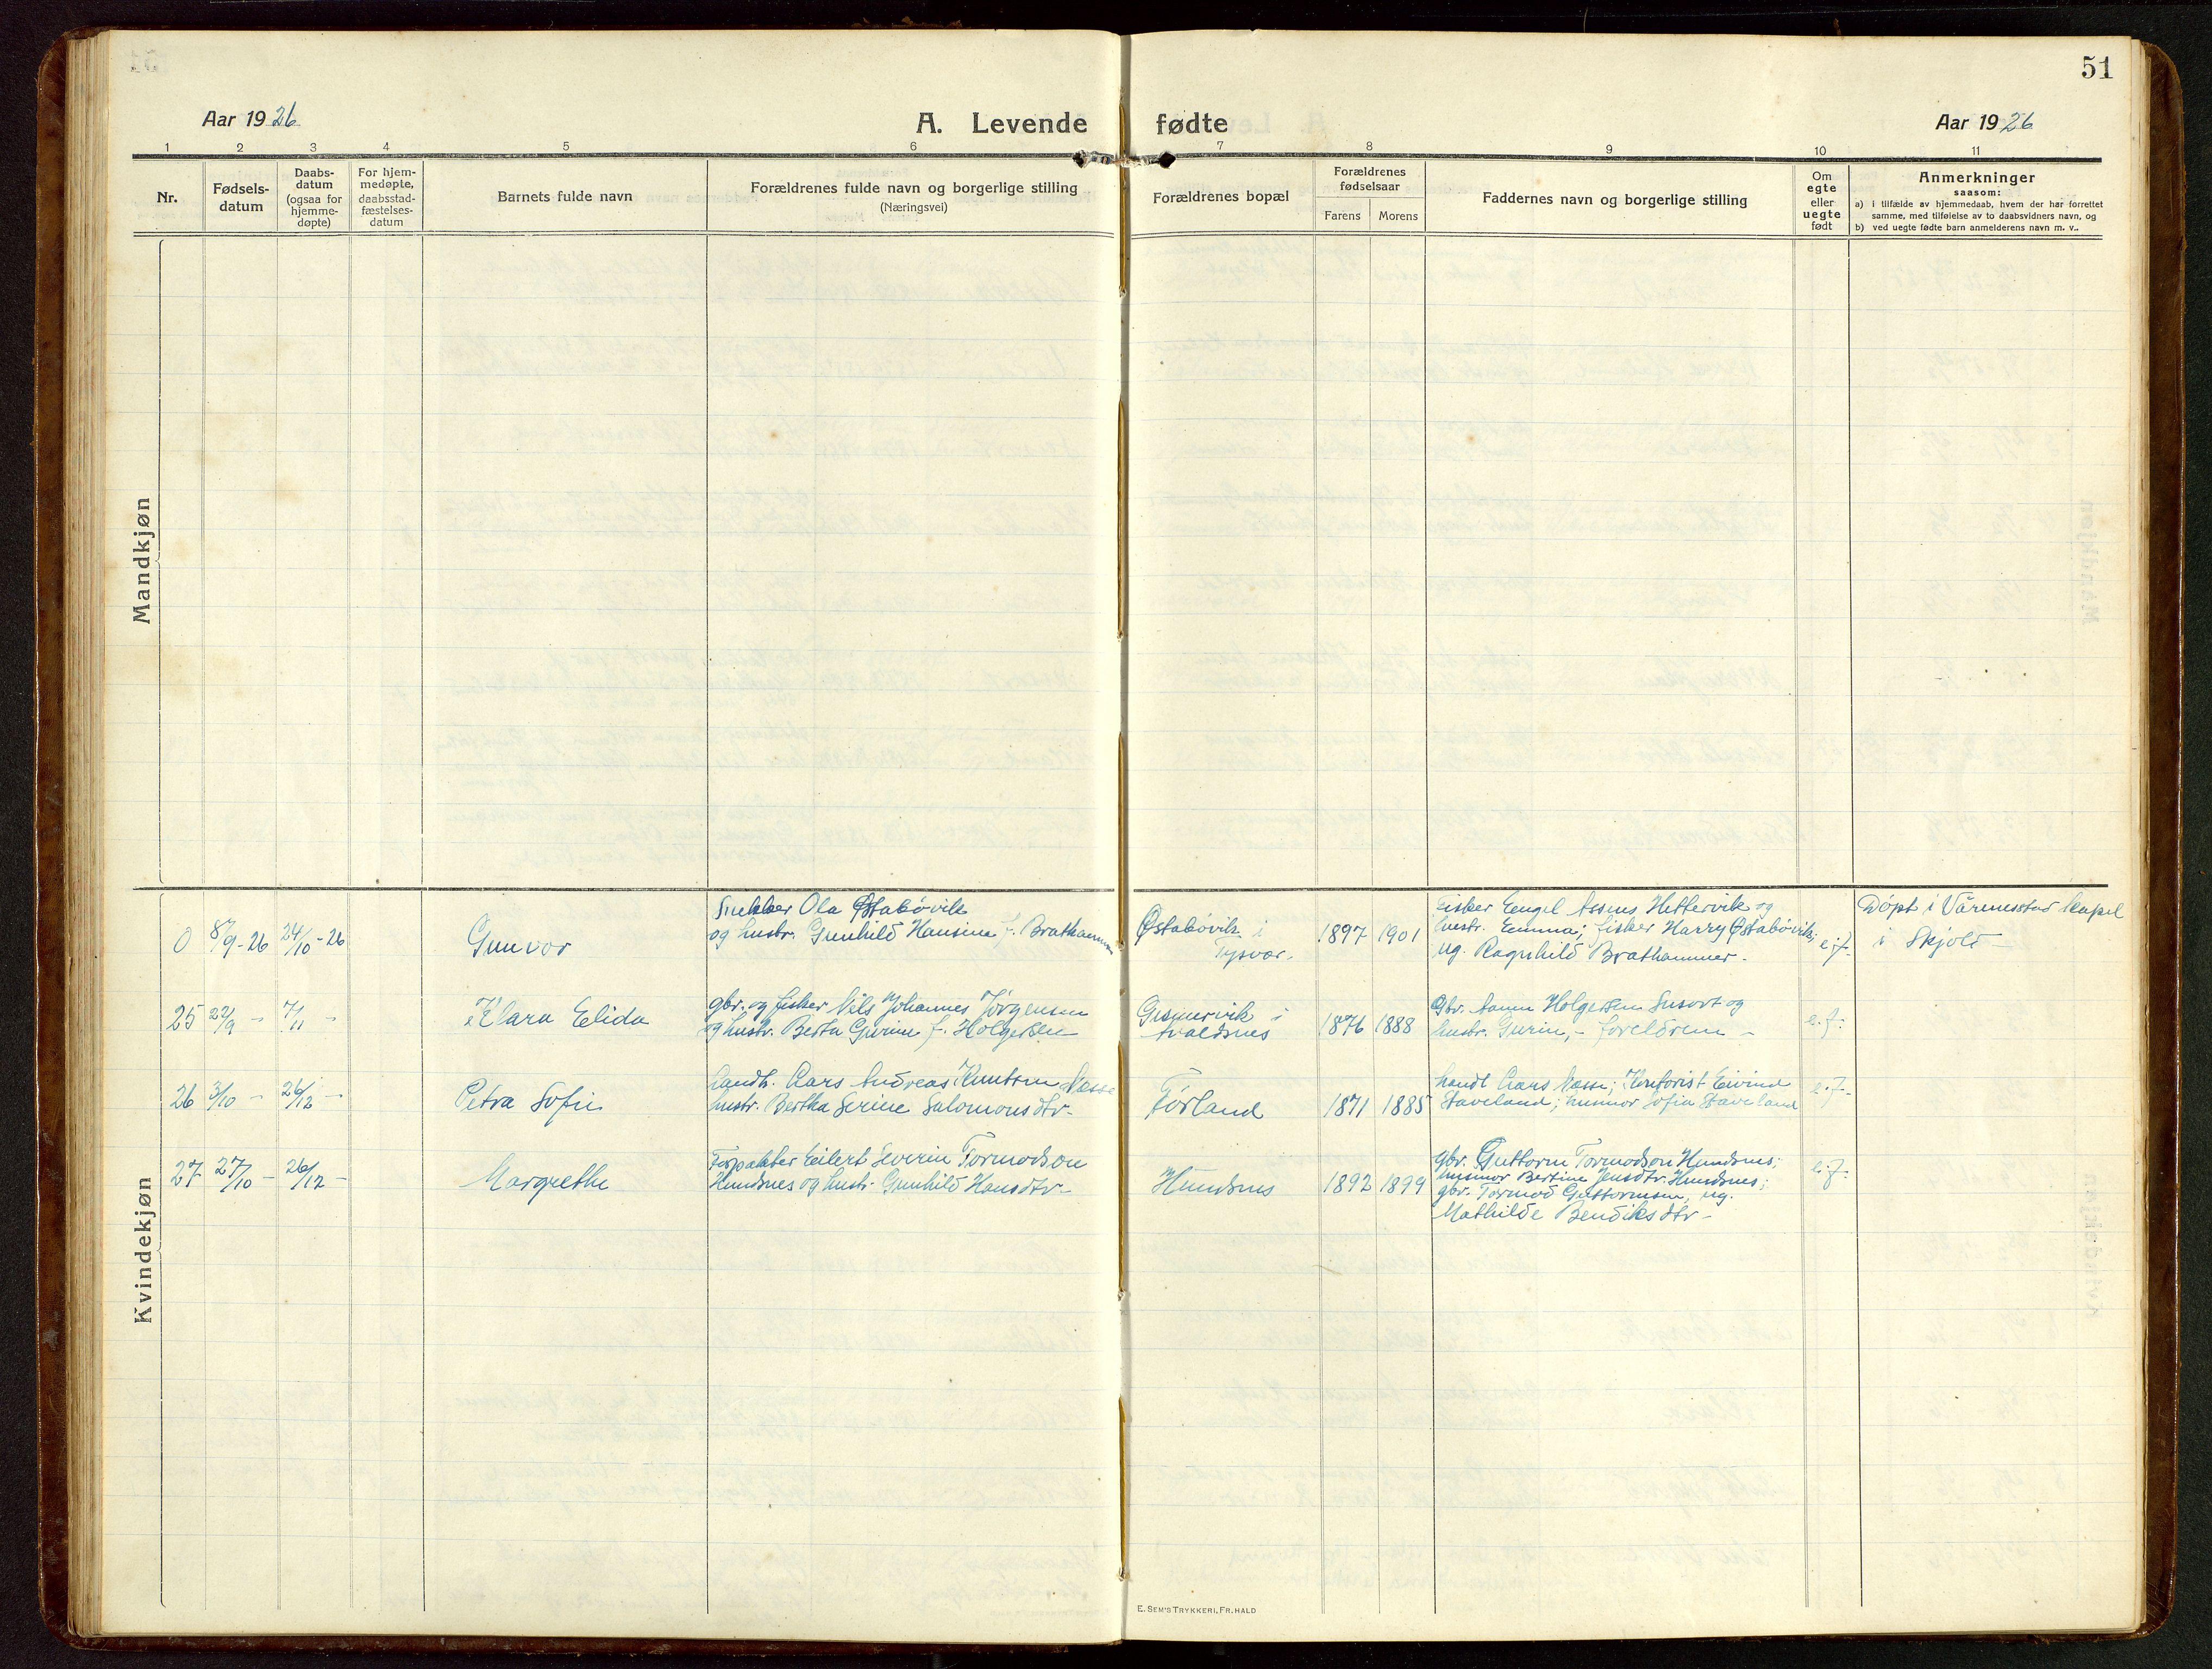 51
Aar 1926
A. Levende fødte
Aar 1926
1 2 3 4 5 6 7 8 9 10 11
Nr.
Fødsels-
datum
Daabs-
datum
(ogsaa for
hjemme-
døpte)
For hjem-
medøpte,
daabsstad-
fæstelses-
datum
Barnets fulde navn
Forældrenes fulde navn og borgerlige stilling
(Næringsvei)
Forældrenes bopæl
Forældrenes
fødselsaar
Farens Morens
Faddernes navn og borgerlige stilling
Om
egte
eller
uegte
født
Anmerkninger
saasom:
a) i tilfælde av hjemmedaab, hvem der har forrettet
samme, med tilføielse av to daabsvidners navn, og
b) ved uegte fødte barn anmelderens navn m. v..
Mandkjøn
Kvindekjøn
0 8/9-26 24/10-26
Gunvor
Snekker Ola Østabövik
og hustr. Gunhild Hansine f. Brathammer
Østabövik i
Tysvær.
1897 1901
Fisker Engel Assens Hettervik og
hustr. Emma; fisker Harry Østabövik;
ug. Ragnhild Brathammer.
e.f.
Döpt i Vårmesstad kapel
i Skjold
25 22/9 - 7/11 -
Klara Elida
gbr. og fisker Nils Johannes Jörgensen
og hustr. Berta Gurine f. Holgersen
i
Avaldsnes
1876 1888
Gbr. Holgersen Susort og
hustr. Gurin, - foreldrene -
e.f.
26 3/10 - 26/12 -
Petra Sofie
Landh. Lars Andreas Knutsen Næsse
hustr. Bertha Serine Salomonsdtr-
Förland
1871 1885
handl Lars Næsse; Kontorist Eivind
Haveland; husmor Sofia Haveland
e.f.
27 27/10 - 26/12 -
Margrethe
Forpakter Eilert Severin Tormodson
Hundsnes og hustr. Gunhild Hansdtr-
Hundsnes
1892 1899
gbr. Guttorm Tormodson Hundsnes;
husmor Bertine Jensdtr. Hundsnes;
gbr. Tormod Guttormsen, ug.
Mathilde Bendiksdtr-
e.f.
E. SEM'S TRYKKERI, FR. HALD